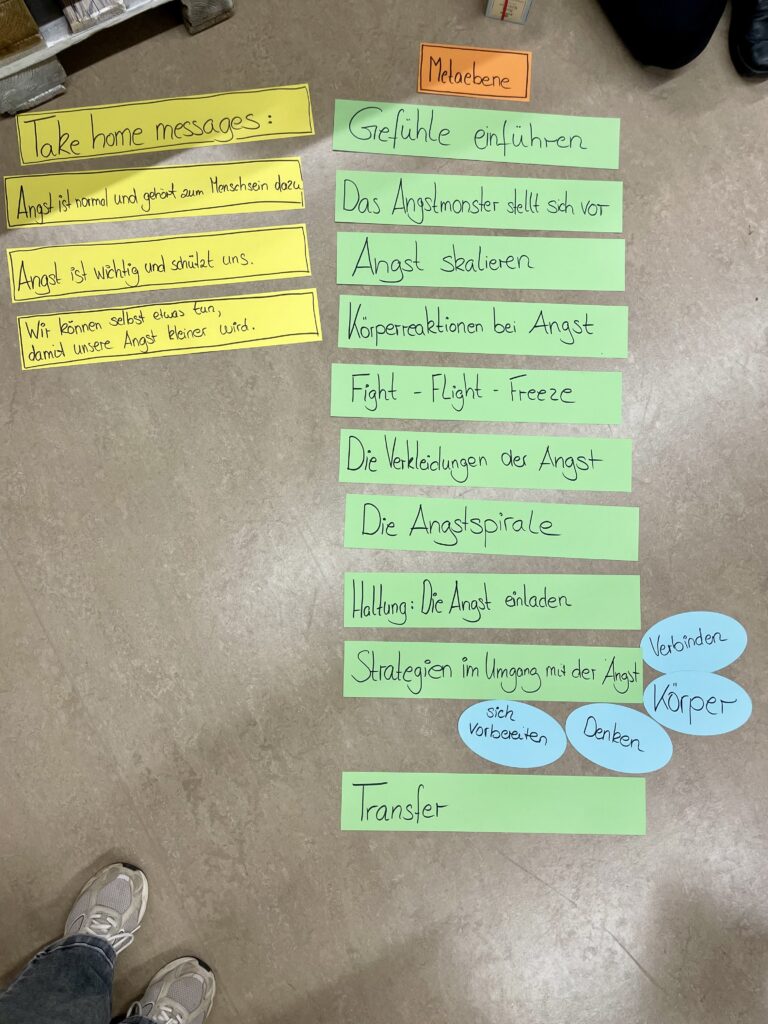 Metaebene
Take home messages:
Angst ist normal und gehört zum Menschsein dazu
Angst ist wichtig und schützt uns.
Wir können selbst etwas tun,
damit unsere Angst kleiner wird.
Gefühle einführen
Das Angstmonster stellt sich vor
Angst skalieren
Körperreaktionen bei Angst
Fight - Flight - Freeze
Die Verkleidungen der Angst
Die Angstspirale
Haltung: Die Angst einladen
Strategien im Umgang mit der Angst
Verbinden
Körper
sich
vorbereiten
Denken
Transfer